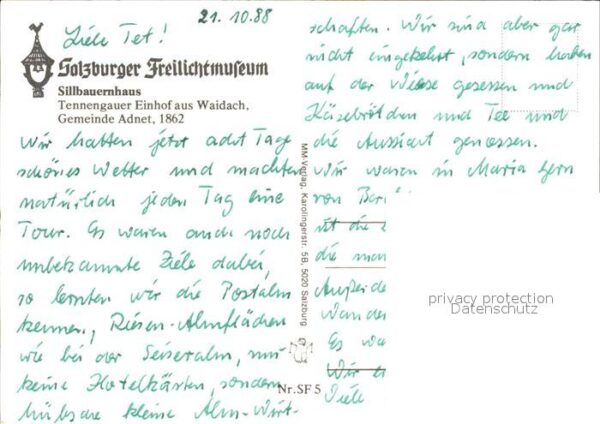 21.10.88
Liebe Tet!
Salzburger Freilichtmuseum
Sillbauernhaus
Tennengauer Einhof aus Waidach,
Gemeinde Adnet, 1862
Wir hatten jetzt acht Tage
schönes Wetter und machten
natürlich jeden Tag eine
Tour. Es waren auch noch
unbekannte Ziele dabei,
so lernten wir die Postalm
kennen, Riesen-Almflächen
wie bei der Seiseralm, nur
keine Hotelkästen, sondern
hübsche kleine Alm-Wirt-
MM-Verlag, Karolingerstr. 5B, 5020 Salzburg
Nr. SF 5
schaften. Wir sind aber gar
nicht eingekehrt, sondern haben
auf der Wiese gesessen und
Käsebrötchen und Tee und
die Aussicht genossen.
Wir waren in Maria Gern
von
ist die
die man
Außerde
Wander
Es wa
Wir
Viele
privacy protection
Datenschutz